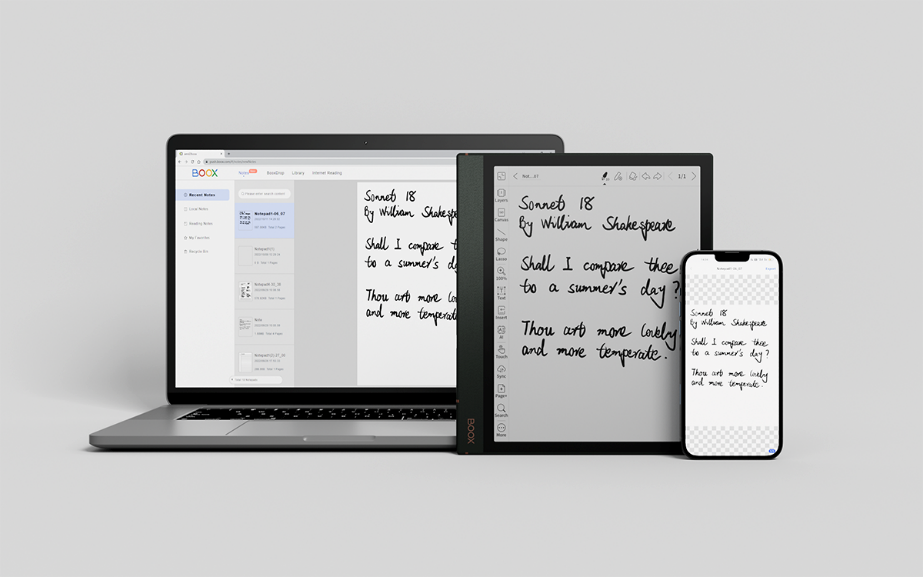 BOOX
Notes
BooxDrop
Library
Internet Reading
Recent Notes
Local Notes
Reading Notes
My Favorites
Recycle Bin
Sonnet 18
By William Shakespe
Shall I compare t
to a summer's da
Thou art more lo
and more temperat
Not...07
1/1
Layers
Canvas
Shape
Lasso
100%
Text
Insert
AI
Touch
Sync
Page+
Search
More
BOOX
Sonnet 18
By William Shakespeare
Shall I compare thee
to a summer's day?
Thou art more lovely
and more temperate.
Sonnet 18
By William Shakespeare
Shall I compare thee
to a summer's day?
Thou art more lovely
and more temperate.